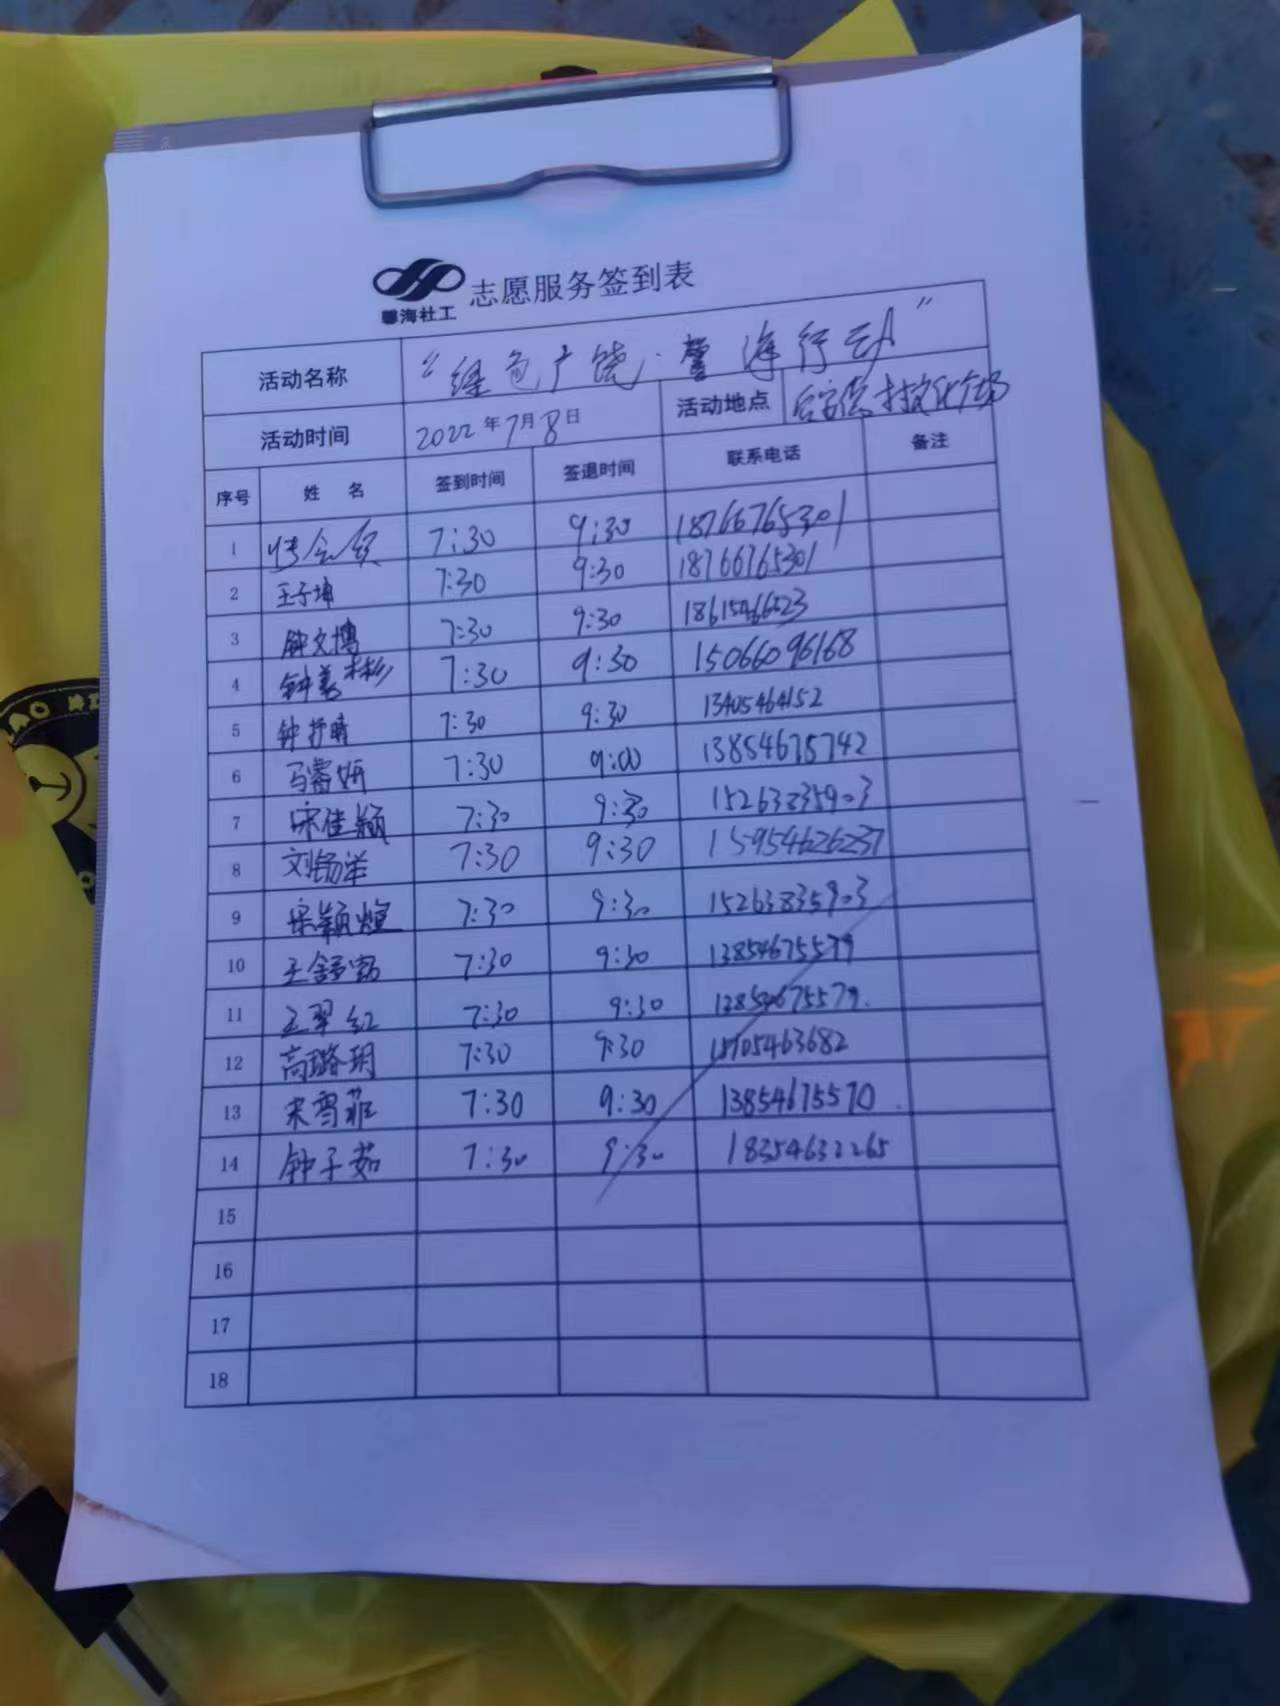 馨海社工 志愿服务签到表
活动名称 “绿色广饶·馨海行动”
活动时间 2022年7月8日 活动地点 村文化广场
序号 姓 名 签到时间 签退时间 联系电话 备注
1 7:30 9:30 18766765301
2 王子坤 7:30 9:30 18766765301
3 钟文博 7:30 9:30
4 钟美彬 7:30 9:30 15066096168
5 钟抒晴 7:30 9:30 13405464152
6 马蕾妍 7:30 9:00 13854675742
7 宋佳颖 7:30 9:30 15263835903
8 7:30 9:30 159954626237
9 宋颖煊 7:30 9:30 15263835903
10 7:30 9:30 13854675579
11 王翠红 7:30 9:30 13854675579.
12 高璐玥 7:30 9:30
13 宋雪菲 7:30 9:30 13854675570
14 钟子茹 7:30 9:30 18354632265
15
16
17
18